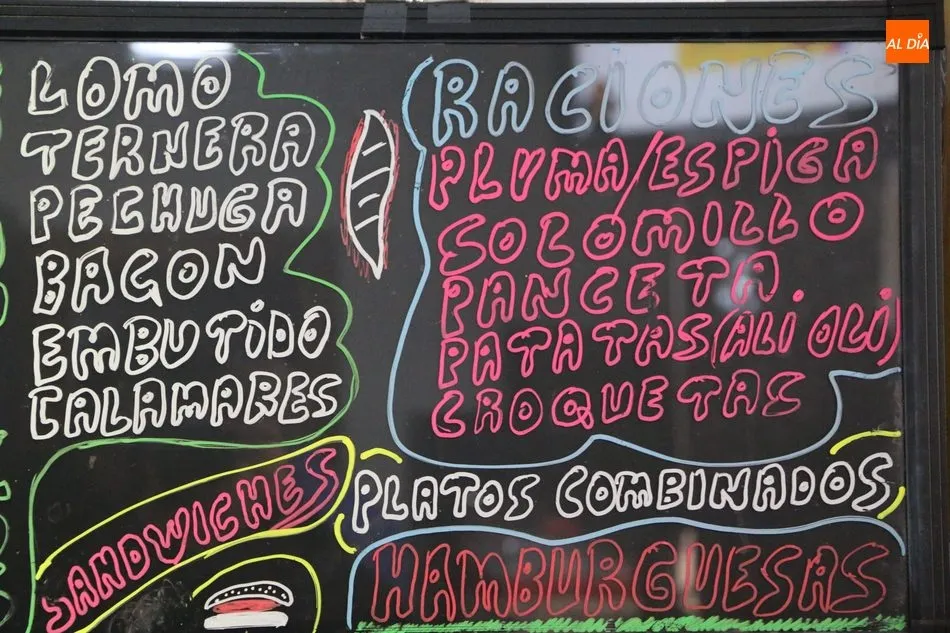 LOMO
TERNERA
PECHUGA
BACON
EMBUTIDO
CALAMARES
SANDWICHES
RACIONES
PLUMA/ESPIGA
SOLOMILLO
PANCETA
PATATAS(ALI OLI)
CROQUETAS
PLATOS COMBINADOS
HAMBURGUESAS
AL DÍA